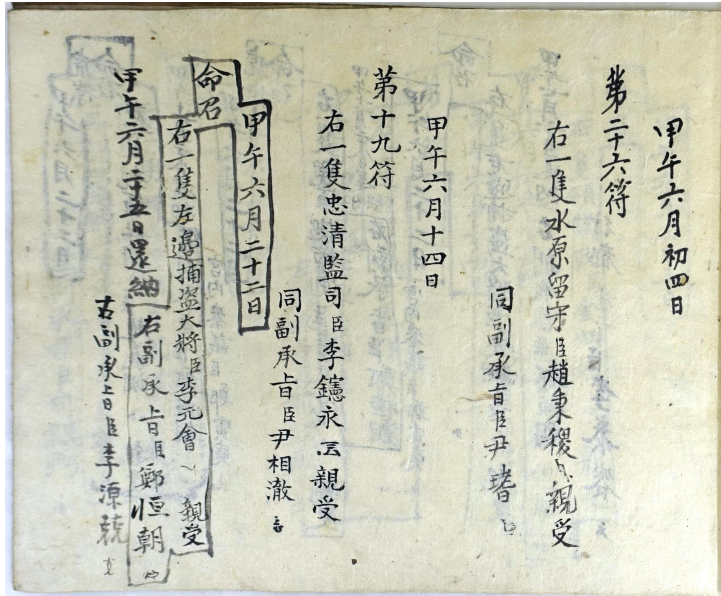 甲午六月初四日
第二十六符
右一隻水原留守臣趙秉稷親受
同副承旨臣尹
甲午六月十四日
第十九符
右一隻忠清監司臣李鑢永親受
同副承旨臣尹相澈
甲午六月二十二日
命召
右一隻左邊捕盜大將臣李元會 親受
右副承旨臣鄭恒朝
甲午六月二十五日還納
右副承旨臣李源競